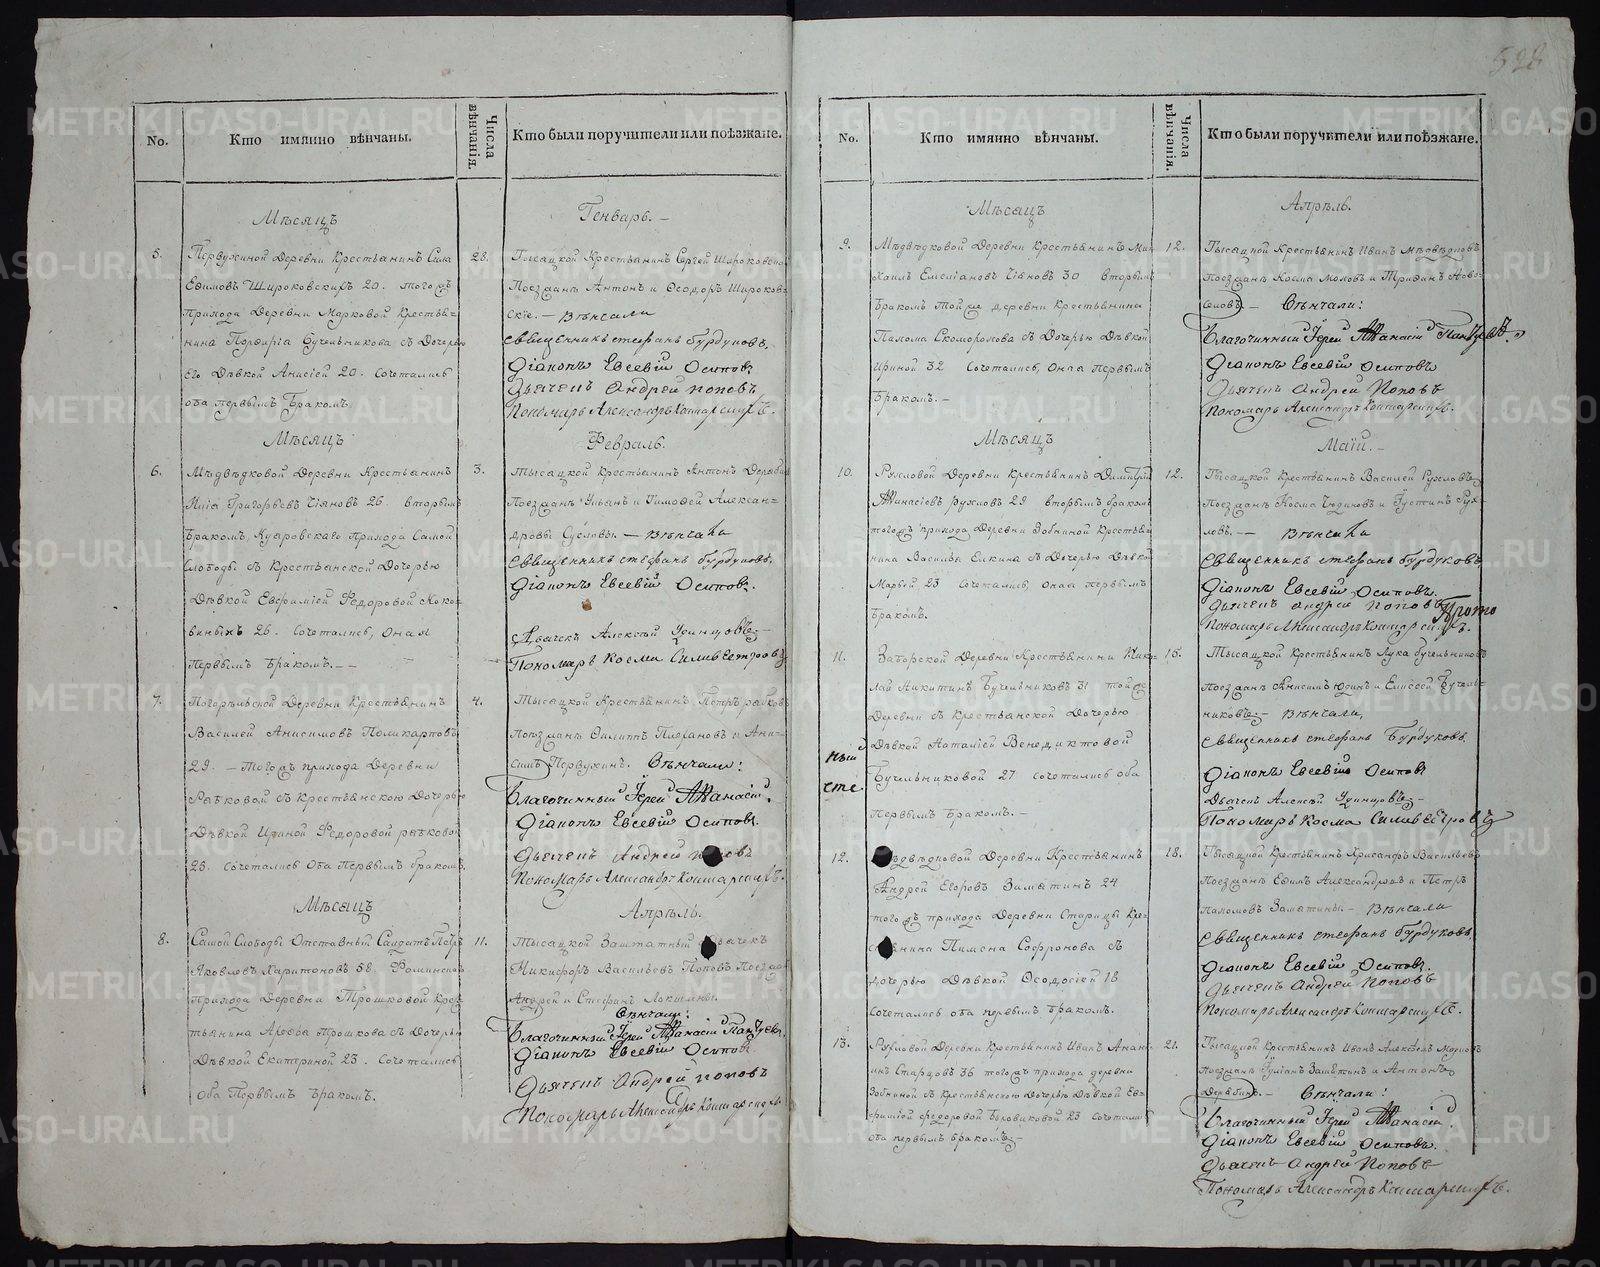 528
No.
Кто имянно вѣнчаны.
Числа вѣнчанія.
Кто были поручители или поѣзжане.
Мѣсяцъ
Генварь. —
5.
Первухиной Деревни Крестьянинъ Сила
Ефимовъ Широковскихъ 20. того жъ
прихода Деревни Марковой Крестья=
нина Порфирія Бучельникова съ Дочерью
его Дѣвкой Анисіей 20. Сочетались
оба первымъ Бракомъ.
28.
Тысяцкой Крестьянинъ Сергей
Поезжанъ Антонъ и Ѳеодоръ Широков=
скіе. — Вѣнчали
священникъ стефанъ бурдуковъ.
Діаконъ Евсевій Осиповъ
Дьячекъ Андрей Поповъ
Пономарь Александръ
Мѣсяцъ
Февраль.
6.
Мѣдвѣдковой Деревни Крестьянинъ
Илія Григорьевъ 26 вторымъ
Бракомъ, прихода Самой
Слободы съ Крестьянской Дочерью
Дѣвкой Евфиміей Ѳедоровой
26. Сочетались, Оная
Первымъ Бракомъ. —
3.
Тысяцкой Крестьянинъ Антонъ
Поезжанъ Ульянъ и Тимоѳей Алексан=
дровы Сусловы. — вѣнчали
священникъ стефанъ бурдуковъ.
Діаконъ Евсевій Осиповъ.
Дьячекъ Алексѣй Удинцовъ —
Пономарь Косма Силивестровъ
7.
Погорѣльской Деревни Крестьянинъ
Василей Анисимовъ Поликарповъ
29. — Тогожъ прихода Деревни
Рѣтковой съ Крестьянскою Дочерью
Дѣвкой Ириной Ѳедоровой
25. сочетались Оба Первымъ бракомъ.
4.
Тысяцкой Крестьянинъ Петръ
Поезжанъ Филиппъ и Ани=
симъ Первухинъ. Вѣнчали:
Благочинный Іерей Аѳанасій
Діаконъ Евсевій Осиповъ.
Дьячекъ Андрей Поповъ
Пономарь Александръ
Мѣсяцъ
Апрѣль.
8.
Самой Слободы Отставный Салдатъ Петръ
Яковлевъ Харитоновъ 58. Фоминскаго
прихода Деревни Трошковой Крес=
тьянина Арефа Трошкова съ Дочерью
Дѣвкой Екатериной 23. Сочетались
Оба Первымъ Бракомъ.
11.
Тысяцкой Заштатный Дьячекъ
Никифоръ Васильевъ Поповъ Поезжан
Андрей и Стефанъ
Вѣнчали:
Благочинный Іерей Аѳанасій
Діаконъ Евсевій Осиповъ
Дьячекъ Андрей Поповъ
Пономарь Александръ
No.
Кто имянно вѣнчаны.
Числа вѣнчанія.
Кто были поручители или поѣзжане.
Мѣсяцъ
Апрѣль.
9.
Мѣдвѣдковой Деревни Крестьянинъ Ми=
хаилъ Емеліановъ 30 вторымъ
Бракомъ той же деревни Крестьянина
Пахома Скоморохова съ Дочерью Дѣвкой
Ириной 32 Сочетались, Оная Первымъ
Бракомъ. —
12.
Тысяцкой Крестьянинъ Иванъ
Поезжанъ Косма и
— Вѣнчали:
Благочинный Іерей Аѳанасій
Діаконъ Евсевій Осиповъ
Дьячекъ Андрей Поповъ
Пономарь Александръ
Мѣсяцъ
Маій. —
10.
Рухловой Деревни Крестьянинъ Димитрій
Аѳанасіевъ Рухловъ 29 вторымъ браком
тогожъ прихода Деревни Зобниной Крестья
нина Василья Елкина съ Дочерью Дѣвкой
Марьей 23 Сочетались, Оная первымъ
Бракомъ.
12.
Тысяцкой Крестьянинъ Василей Рухловъ
Поезжанъ Косма и Іустинъ Рух=
ловъ. — вѣнчали
священникъ стефанъ бурдуковъ
Діаконъ Евсевій Осиповъ.
Дьячекъ андрей Поповъ
Пономарь Александръ
11.
Заборской Деревни Крестьянинъ Нико=
лай Никитинъ Бучельниковъ 31 той же
Деревни съ Крестьянской Дочерью
Дѣвкой Наталіей Венедиктовой
Бучельниковой 27 сочетались оба
Первымъ Бракомъ. —
15.
Тысяцкой Крестьянинъ Лука бучельниковъ
поезжанъ Анисимъ Юдинъ и Елисей Бучель=
никовъ. — Вѣнчали,
священникъ стефанъ Бурдуковъ.
Діаконъ Евсевій Осиповъ
Дьячекъ Алексѣй Удинцовъ —
Пономарь Косма Силивестровъ
12.
Мѣдвѣдковой Деревни Крестьянинъ
Андрей Егоровъ Замятинъ 24
тогожъ прихода Деревни Старицы Кре=
стьянина Пимена Софронова съ
дочерью Дѣвкой Ѳеодосіей 18
Сочетались оба первымъ Бракомъ.
18.
Тысяцкой Крестьянинъ Хрисанфъ Васильевъ
Поезжанъ Ефимъ Александровъ и Петръ
Пахомовъ Замятины. — Вѣнчали
священникъ стефанъ бурдуковъ,
Діаконъ Евсевій Осиповъ.
Дьячекъ Андрей Поповъ
Пономарь Александръ
13.
Рухловой Деревни Крестьянинъ Иванъ Анань=
инъ Старцовъ 36 тогожъ прихода деревни
Зобниной съ Крестьянскою Дочерью Дѣвкой Ев=
фиміей Ѳедоровой 23 Сочетались
оба первымъ бракомъ —
21.
Тысяцкой Крестьянинъ Иванъ Алексѣевъ
Поезжанъ Іуліанъ Замятинъ и Антонъ
Дерябинъ. — Вѣнчали:
Благочинный Іерей Аѳанасій.
Діаконъ Евсевій Осиповъ.
Дьячекъ Андрей Поповъ
Пономарь Александръ
METRIKI.GASO-URAL.RU